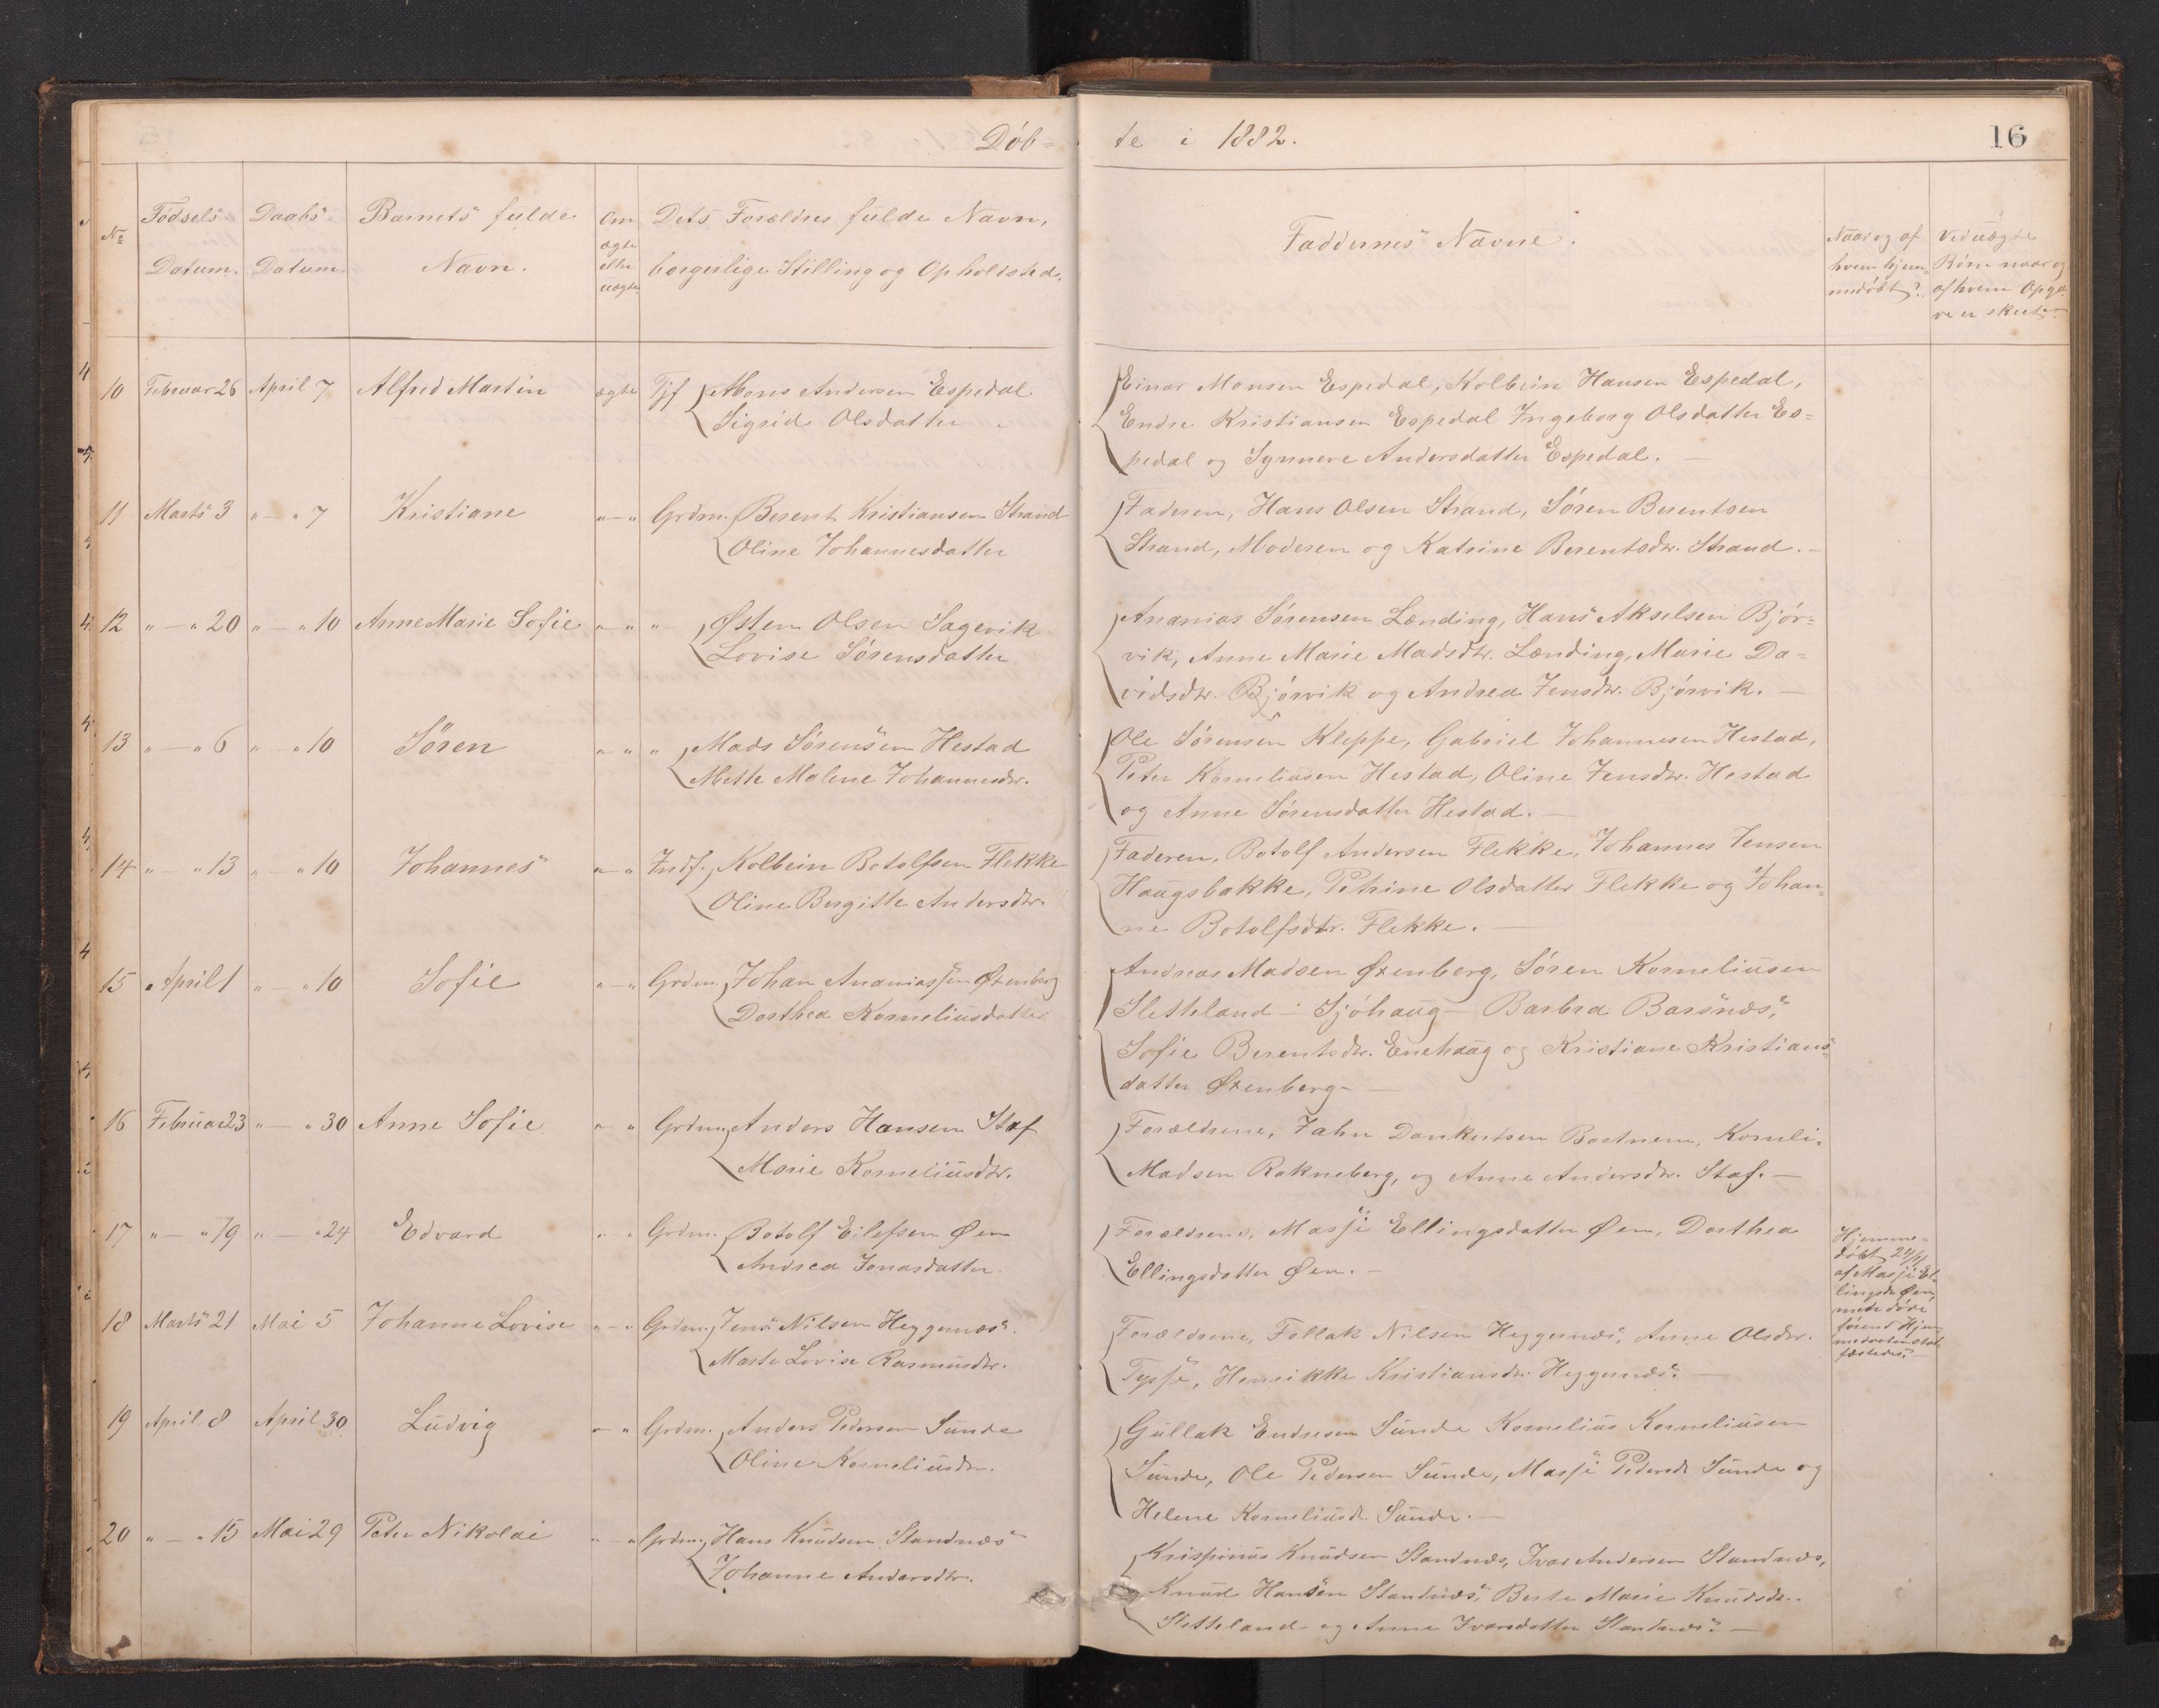 Döb-
te i 1882.
16
No
Födsels Datum.
Daabs Datum.
Barnets fulde Navn.
Om ægte eller uægte
Dets Forældres fulde Navn,
borgerlige Stilling og Opholdsted.
Faddernes Navne.
Naar og af
hvem hjem-
medöbt?
Ved uægte
Börn naar og
af hvem Opga-
ve er skeet
10 Februar 26 April 7 Alfred Martin ægte Pjf Mons Andersen Espedal
Sigrid Olsdatter
Einar Monsen Espedal, Kolbein Hansen Espedal,
Endre Kristiansen Espedal Ingeborg Olsdatter Es=
pedal og Synneve Andersdatter Espedal. —
11 Marts 3 " — " 7 Kristiane " — " Grdm. Berent Kristiansen Strand
Oline Johannesdatter
Faderen, Hans Olsen Strand, Sören Berentsen
Strand, Moderen og Katrine Berentsdtr. Strand. —
12 " — " 20 " — " 10 Anne Marie Sofie " — " " Østen Olsen Sagevik
Lovise Sörensdatter
Ananias Sörensen Lænding, Hans Akselsen Björ=
vik, Anne Marie Madsdtr. Lænding, Marie Da=
vidsdtr. Björvik og Andrea Jensdtr. Björvik. —
13 " — " 6 " — " 10 Sören " — " " Mads Sörensen Hestad
Mette Malene Johannesdr.
Ole Sörensen Kleppe, Gabriel Johannesen Hestad,
Peter Korneliusen Hestad, Oline Jensdtr. Hestad
og Anne Sörensdatter Hestad. —
14 " — " 13 " — " 10 Johannes " — " Indf. Kolbein Botolfsen Flekke
Oline Bergitte Andersdtr.
Faderen, Botolf Andersen Flekke, Johannes Jensen
Haugsbakke, Petrine Olsdatter Flekke og Johan=
ne Botolfsdtr. Flekke. —
15 " April 1 " — " 10 Sofie " — " Grdm. Johan Ananiassen Øxenberg
Dorthea Korneliusdatter
Andreas Madsen Øxenberg, Sören Korneliusen
Sletteland - Sjöhaug - Barbra Barsnæs,
Sofie Berentsdtr. Enehaug og Kristiane Kristians-
datter Øxenberg. —
16 Februar 23 " — " 30 Anne Sofie " " Grdm. Anders Hansen Staf
Marie Korneliusdtr.
Forældrene, Jahn Dankertsen Bortnem, Korneli-
Madsen Rakneberg, og Anne Andersdtr. Staf. —
17 " — " 19 " — " 24 Edvard " " Grdm. Botolf Eilefsen Øen
Andrea Jonasdatter
Forældrene, Massi Ellingsdatter Øen, Dorthea
Ellingsdatter Øen. —
Hjemme-
döbt 24/4
af Massi El-
lingsdr Øen,
döde
förend Hjem-
medaaben stad
fæstedes. —
18 Marts 21 Mai 5 Johanne Lovise " — " Grdm. Jens Nilsen Heggernæs.
Marte Lovise Rasmusdtr.
Forældrene, Follak Nilsen Heggernæs, Anne Olsdtr.
Tysse, Henrikke Kristiansdtr. Heggernæs. —
19 April 8 April 30 Ludvig " — " Grdm. Anders Pedersen Sunde
Oline Korneliusdtr.
Gullak Endresen Sunde Kornelius Korneliusen
Sunde, Ole Pedersen Sunde, Massi Pedersdr Sunde og
Helene Korneliusdr. Sunde. —
20 " — " 15 Mai 29 Peter Nikolai " — " Grdm. Hans Knudsen Standnæs
Johanne Andersdtr.
Krispinus Knudsen Standnæs, Ivar Andersen Standnæs,
Knud Hansen Standnæs, Berte Marie Knudsdr.
Sletteland og Anne Ivarsdatter Standnæs. —